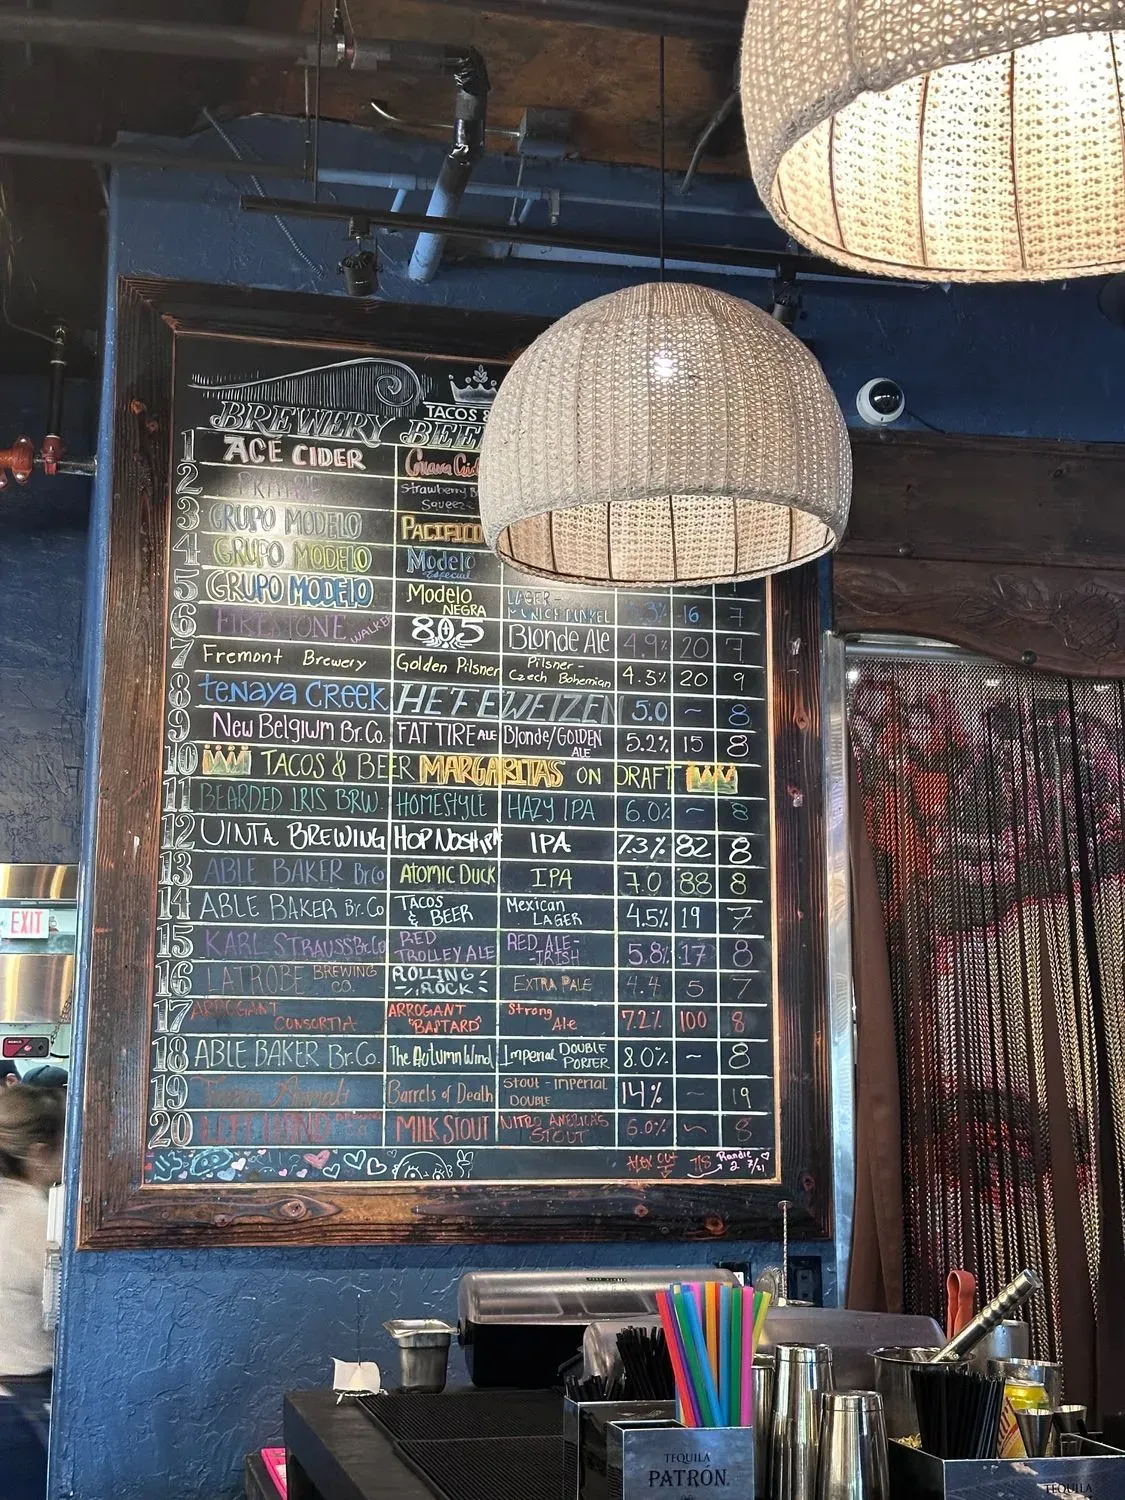 TACOS &
BREWERY BEE
1 ACE CIDER Guava Cid
2 PRAIRIE Strawberry
Squeeze
3 GRUPO MODELO PACIFICO
4 GRUPO MODELO Modelo Especial
5 GRUPO MODELO Modelo NEGRA LAGER - MUNICH DUNKEL 5.3% 16 7
6 FIRESTONE WALKER 805 Blonde Ale 4.9% 20 7
7 Fremont Brewery Golden Pilsner Pilsner - Czech Bohemian 4.5% 20 9
8 tenaya Creek HEFEWEIZEN 5.0 ~ 8
9 New Belgium Br.Co. FAT TIRE ALE Blonde/GOLDEN ALE 5.2% 15 8
10 TACOS & BEER MARGARITAS ON DRAFT
11 BEARDED IRIS BRW. HOMESTYLE HAZY IPA 6.0% - 8
12 UINTA BREWING HOP NOSH IPA IPA 7.3% 82 8
13 ABLE BAKER Br Co Atomic Duck IPA 7.0 88 8
14 ABLE BAKER Br. Co TACOS & BEER Mexican LAGER 4.5% 19 7
15 KARL STRAUSS Br.Co RED TROLLEY ALE RED ALE - IRISH 5.8% 17 8
16 LATROBE BREWING CO. ROLLING ROCK EXTRA PALE 4.4 5 7
17 ARROGANT CONSORTIA ARROGANT "BASTARD" Strong Ale 7.2% 100 8
18 ABLE BAKER Br.Co. The Autumn Wind Imperial DOUBLE PORTER 8.0% ~ 8
19 Barrels of Death STOUT - Imperial DOUBLE 14% - 19
20 LEFT HAND MILK STOUT NITRO AMERICAN STOUT 6.0% ~ 8
EXIT
TEQUILA
PATRÓN.
TEQUILA